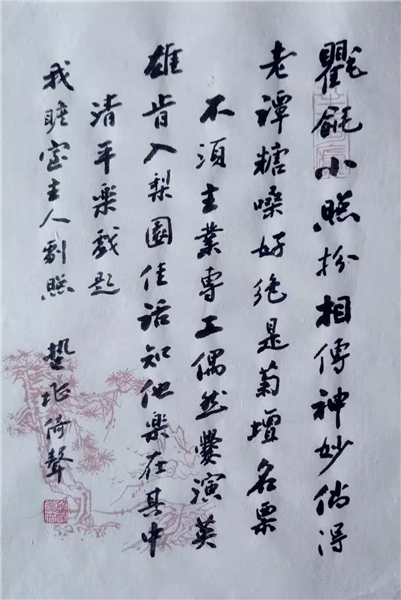 氍毹小照扮相傳神妙倘得
老譚糖嗓好絶是菊壇名票
不須主業專工偶然爨演英
雄肯入梨園佳話知他樂在其中
清平樂戲題
我主人劇照 倚聲